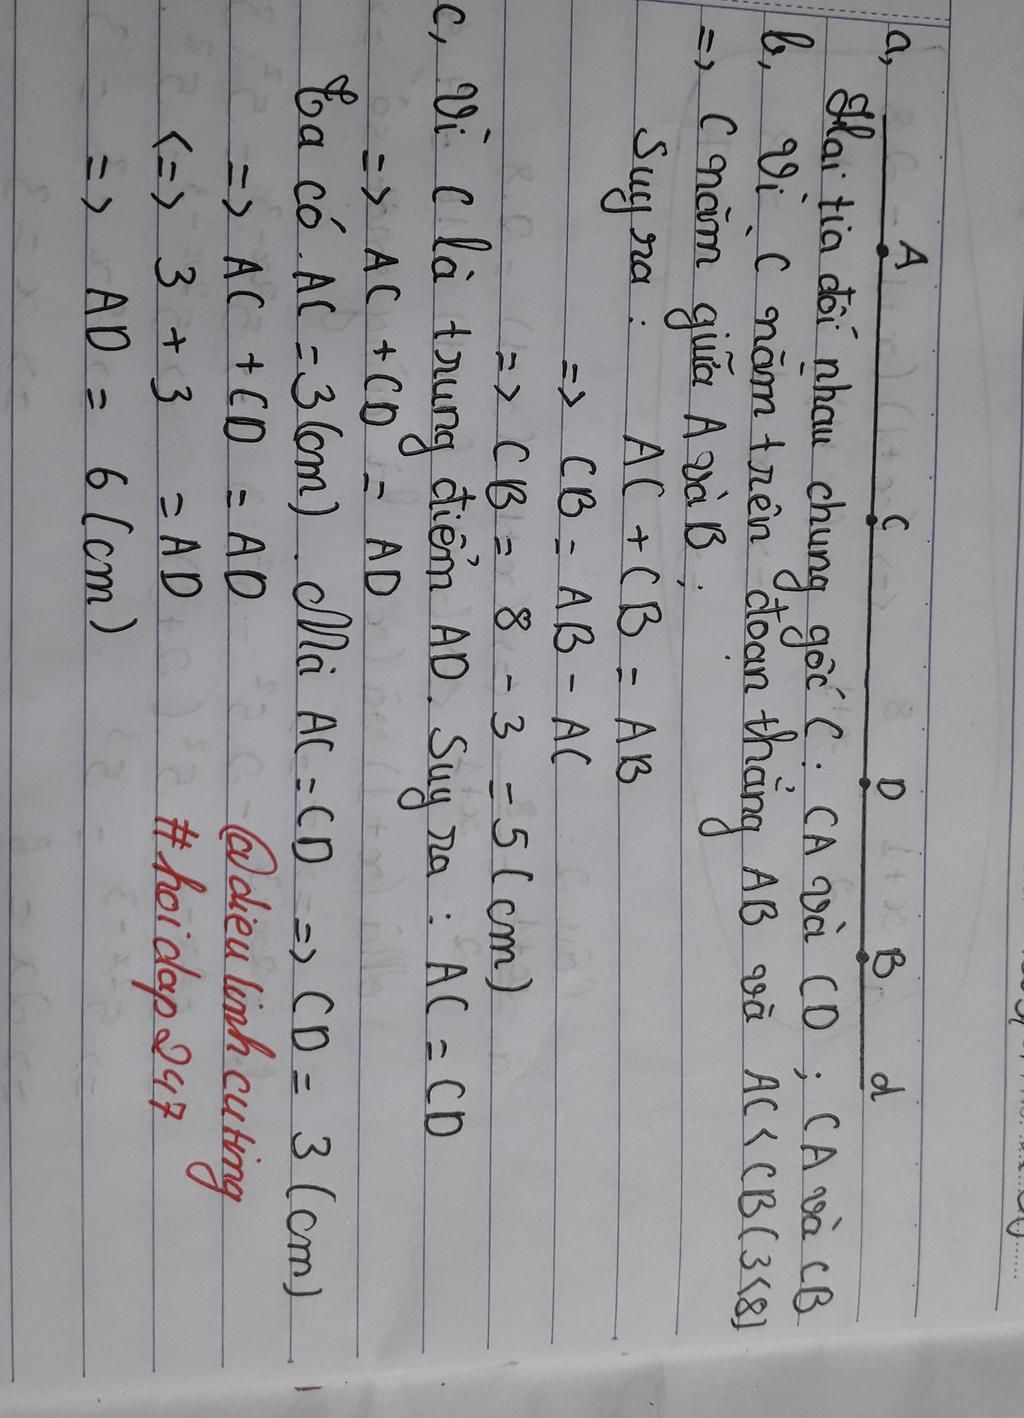 a,
A C D B d
Hai tia đối nhau chung gốc C: CA và CD; CA và CB
b, Vì C nằm trên đoạn thẳng AB và AC < CB (3<8)
=> C nằm giữa A và B.
Suy ra: AC + CB = AB
=> CB = AB - AC
=> CB = 8 - 3 = 5 (cm)
c, Vì C là trung điểm AD. Suy ra: AC = CD
=> AC + CD = AD
Ta có AC = 3 (cm). Mà AC = CD => CD = 3 (cm)
=> AC + CD = AD
<=> 3 + 3 = AD
=> AD = 6 (cm)
@dieu linh cuting
#hoidap247